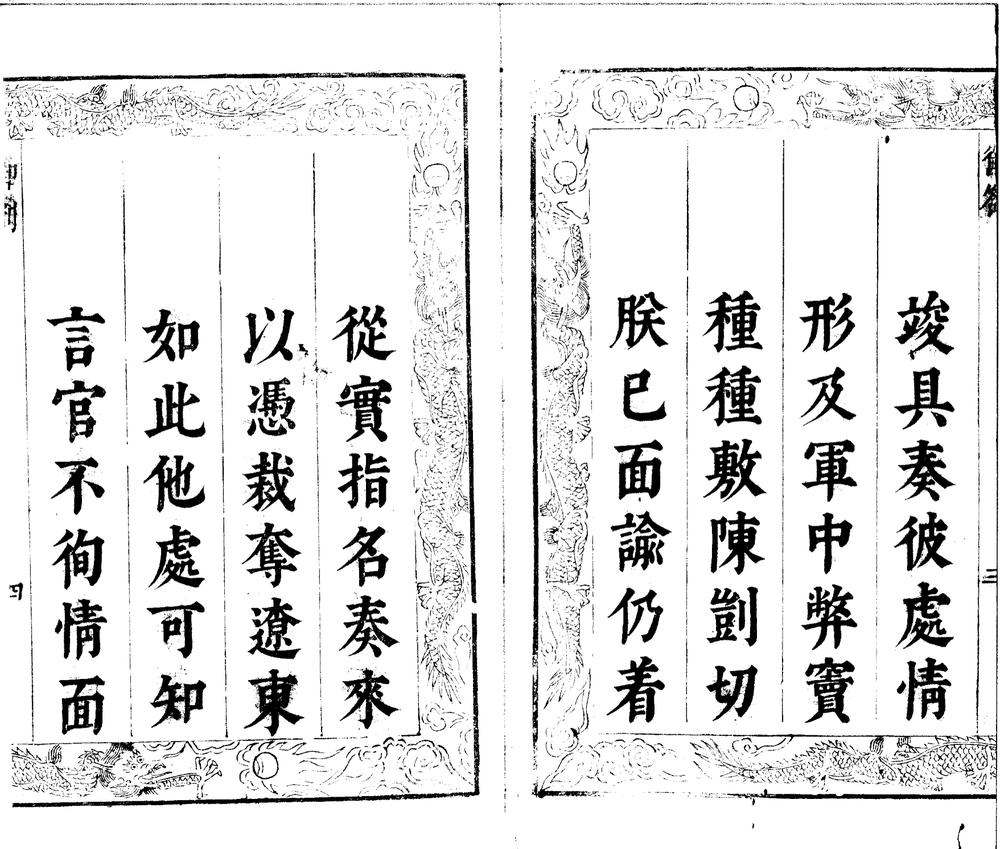 竣具奏彼處情
形及軍中弊竇
種種敷陳剴切
朕已面諭仍着
三
從實指名奏來
以憑裁奪遼東
如此他處可知
言官不徇情面
四